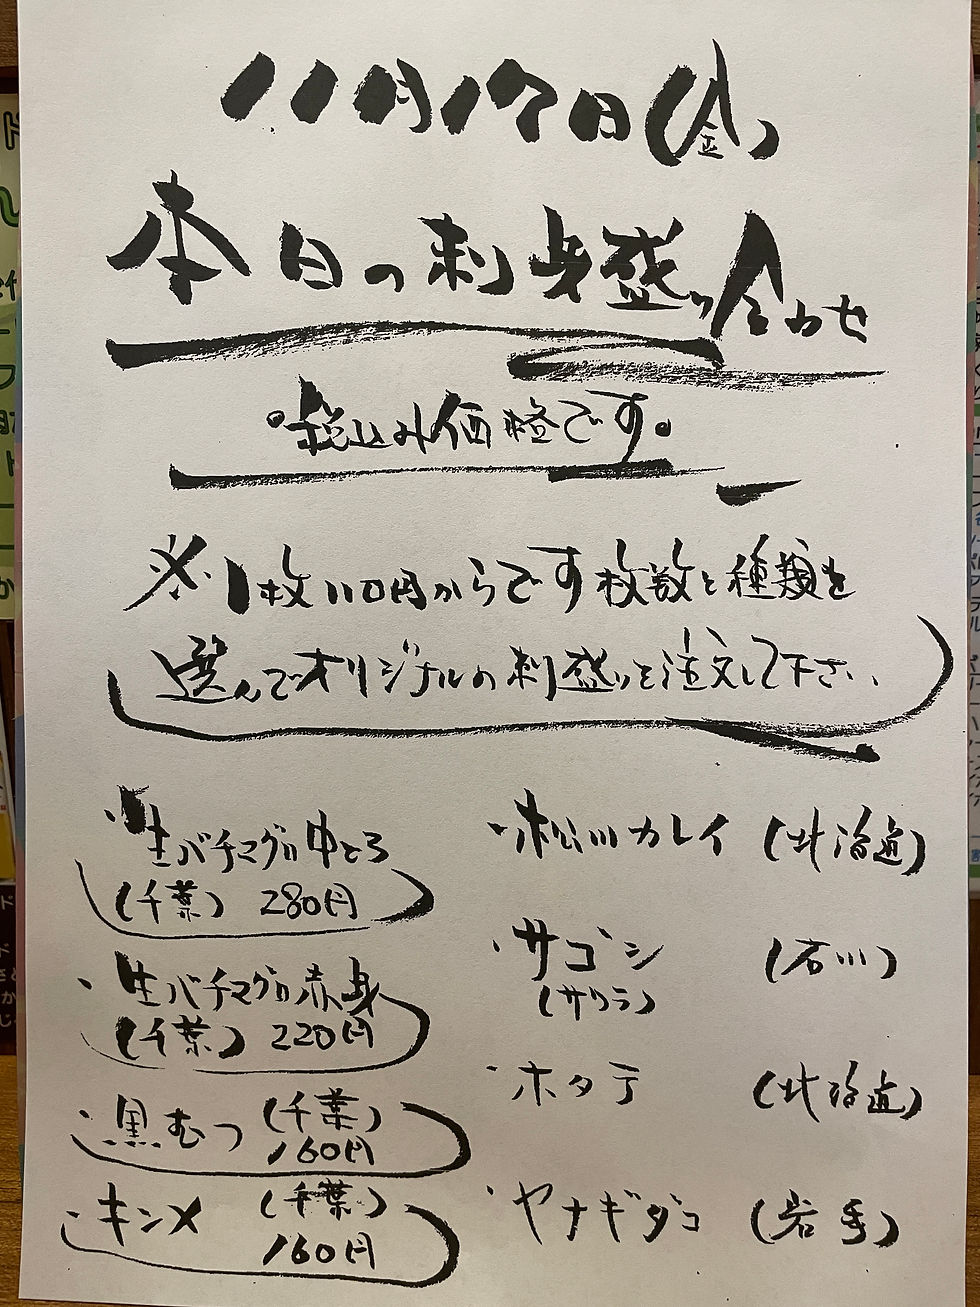 11月17日(金)
本日の刺身盛り合わせ
。税込み価格です。
※1枚110円からです枚数と種類を
選んでオリジナルの刺盛りを注文して下さい、
・生バチマグロ中とろ
(千葉) 280円
・生バチマグロ赤身
(千葉) 220円
・黒むつ (千葉)
160円
・キンメ (千葉)
160円
・松川カレイ (北海道)
・サゴシ (石川)
(サワラ)
・ホタテ (北海道)
・ヤナギダコ (岩手)